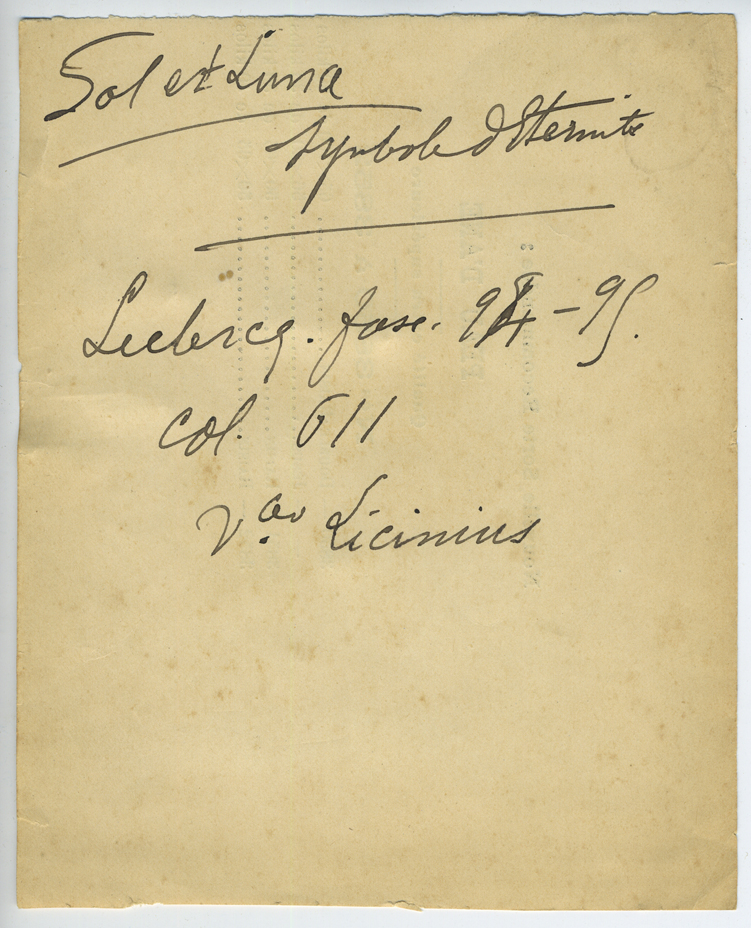 Sol et Luna
Symbole d'Eternite
Leclercq. fasc. 94-95.
col. 611
Licinius